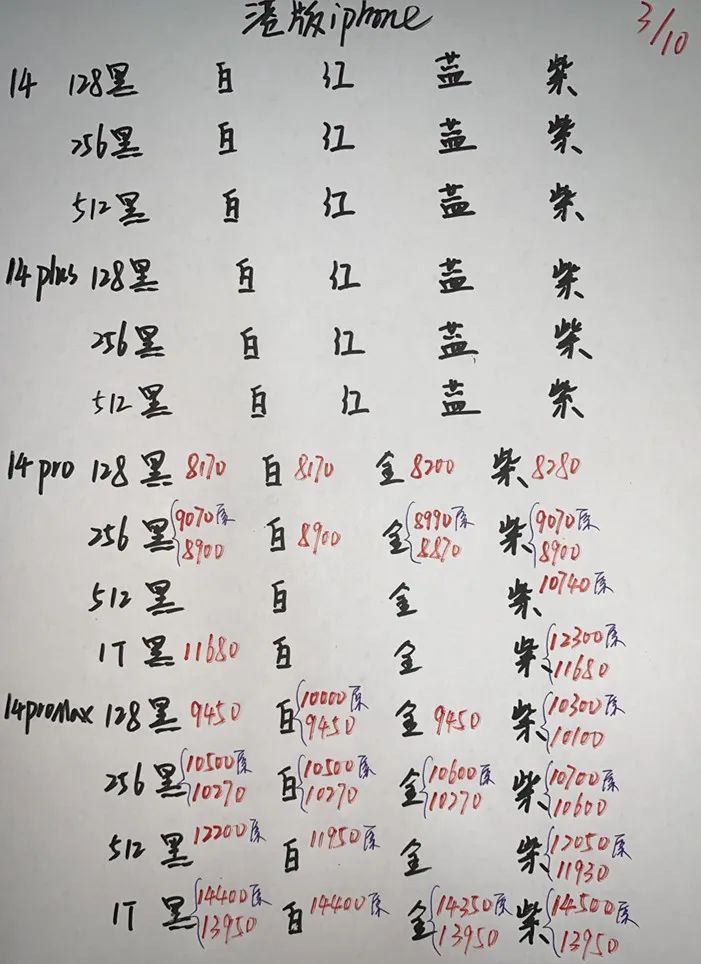 港版iphone 3/10
14 128黑 白 红 蓝 紫
256黑 白 红 蓝 紫
512黑 白 红 蓝 紫
14plus 128黑 白 红 蓝 紫
256黑 白 红 蓝 紫
512黑 白 红 蓝 紫
14pro 128黑8170 白8170 金8200 紫8280
256黑{9070原 8900 白8900 金{8990原 8870 紫{9070原 8900
512黑 白 金 紫10740原
1T黑11680 白 金 紫{12300原 11680
14proMax 128黑9450 白{10000原 9450 金9450 紫{10300原 10100
256黑{10500原 10270 白{10500原 10270 金{10600原 10270 紫{10700原 10600
512黑12200原 白11950原 金 紫{12050原 11930
1T黑{14400原 13950 白14400原 金{14350原 13950 紫{14500原 13950